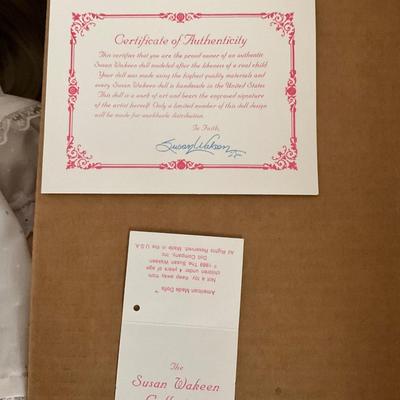 Certificate of Authenticity
This certifies that you are the proud owner of an authentic
Susan Wakeen doll modeled after the likeness of a real child
Your doll was made using the highest quality materials and
every Susan Wakeen doll is handmade in the United States
This doll is a work of art and bears the engraved signature
of the artist herself. Only a limited number of this doll design
will be made for worldwide distribution.
In Faith,
Susan Wakeen
American Made Dolls ™
Not a toy. Keep away from
children under 4 years of age
© 1989 The Susan Wakeen
Doll Company, Inc.
All Rights Reserved. Made in the U.S.A.
The
Susan Wakeen